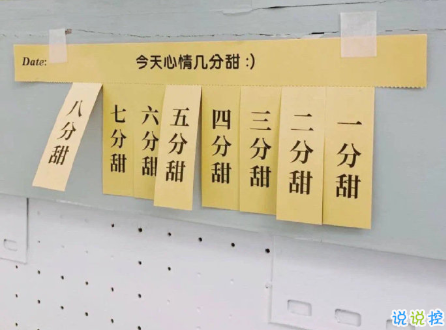 Date:
今天心情几分甜:)
八分甜
七分甜
六分甜
五分甜
四分甜
三分甜
二分甜
一分甜
说说控